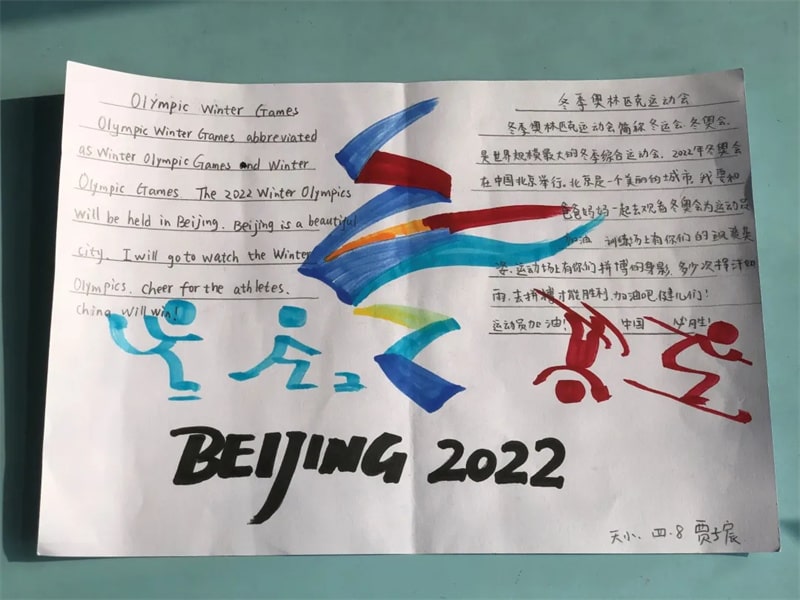 Olympic Winter Games
Olympic Winter Games abbreviated
as Winter Olympic Games and Winter
Olympic Games. The 2022 Winter Olympics
will be held in Beijing. Beijing is a beautiful
city. I will go to watch the Winter
Olympics. Cheer for the athletes.
China will win!
冬季奥林匹克运动会
冬季奥林匹克运动会简称冬运会、冬奥会.
是世界规模最大的冬季综合运动会. 2022年冬奥会
在中国北京举行. 北京是一个美丽的城市, 我要和
爸爸妈妈一起去观看冬奥会为运动员
加油 训练场上有你们的飒爽英
姿. 运动场上有你们拼搏的身影. 多少次挥汗如
雨. 去拼搏才能胜利. 加油吧健儿们!
运动员加油! 中国 必胜!
BEIJING 2022
天小. 四.8 贾子宸